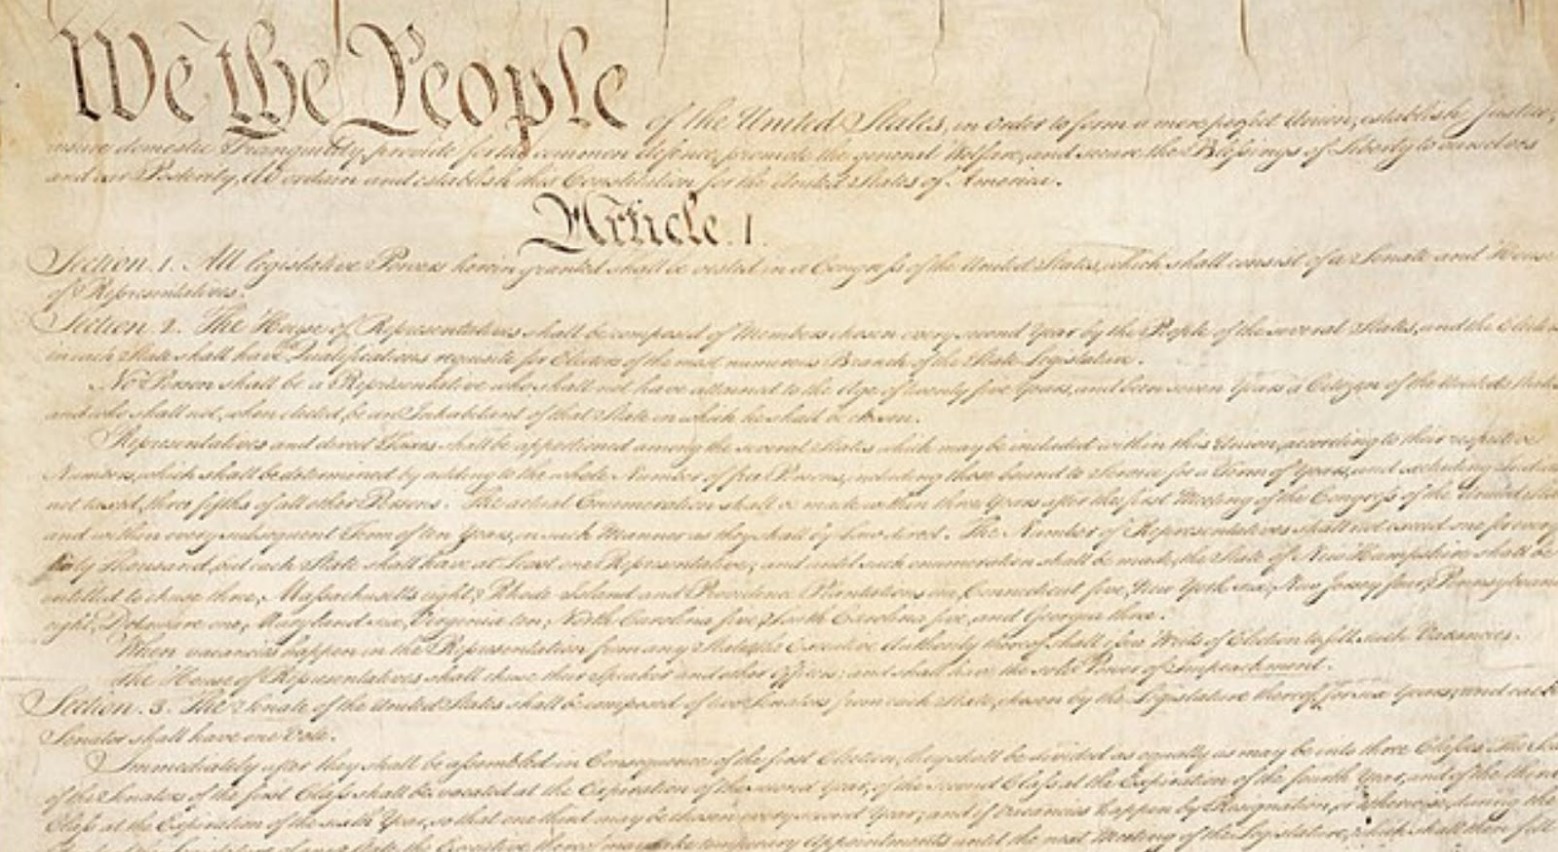 We the People of the United States, in Order to form a more perfect Union, establish Justice,
insure domestic Tranquility, provide for the common defence, promote the general Welfare, and secure the Blessings of Liberty to ourselves
and our Posterity, do ordain and establish this Constitution for the United States of America.
Article. I.
Section. 1. All legislative Powers herein granted shall be vested in a Congress of the United States, which shall consist of a Senate and House
of Representatives.
Section. 2. The House of Representatives shall be composed of Members chosen every second Year by the People of the several States, and the
in each State shall have Qualifications requisite for Electors of the most numerous Branch of the State Legislature.
No Person shall be a Representative who shall not have attained to the Age of twenty five Years, and been seven Years a Citizen of the United States,
and who shall not, when elected, be an Inhabitant of that State in which he shall be chosen.
Representatives and direct Taxes shall be apportioned among the several States which may be included within this Union, according to their respective
Numbers, which shall be determined by adding to the whole Number of free Persons, including those bound to Service for a Term of Years, and excluding
not taxed, three fifths of all other Persons. The actual Enumeration shall be made within three Years after the first Meeting of the Congress of the United
and within every subsequent Term of ten Years, in such Manner as they shall by Law direct. The Number of Representatives shall not exceed one for every
thirty Thousand, but each State shall have at Least one Representative; and until such enumeration shall be made, the State of New Hampshire shall be
entitled to chuse three, Massachusetts eight, Rhode-Island and Providence Plantations one, Connecticut five, New-York six, New Jersey four,
eight, Delaware one, Maryland six, Virginia ten, North Carolina five, South Carolina five, and Georgia three.
When vacancies happen in the Representation from any State, the Executive Authority thereof shall issue Writs of Election to fill such Vacancies.
The House of Representatives shall chuse their Speaker and other Officers; and shall have the sole Power of Impeachment.
Section. 3. The Senate of the United States shall be composed of two Senators from each State, chosen by the Legislature thereof, for six Years; and each
Senator shall have one Vote.
Immediately after they shall be assembled in Consequence of the first Election, they shall be divided as equally as may be into three Classes. The
of the Senators of the first Class shall be vacated at the Expiration of the second Year, of the second Class at the Expiration of the fourth Year, and of the third
Class at the Expiration of the sixth Year, so that one third may be chosen every second Year; and if Vacancies happen by Resignation, or otherwise, during the
the Executive thereof may make temporary Appointments until the next Meeting of the Legislature, which shall then fill